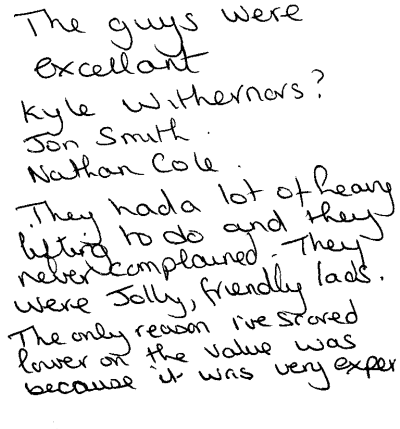 The guys were
excellant
Kyle Withernors?
Jon Smith.
Nathan Cole.
They had a lot of heavy
lifting to do and they
never complained. They
were Jolly, friendly lads.
The only reason i've scored
lower on the value was
because it was very exper